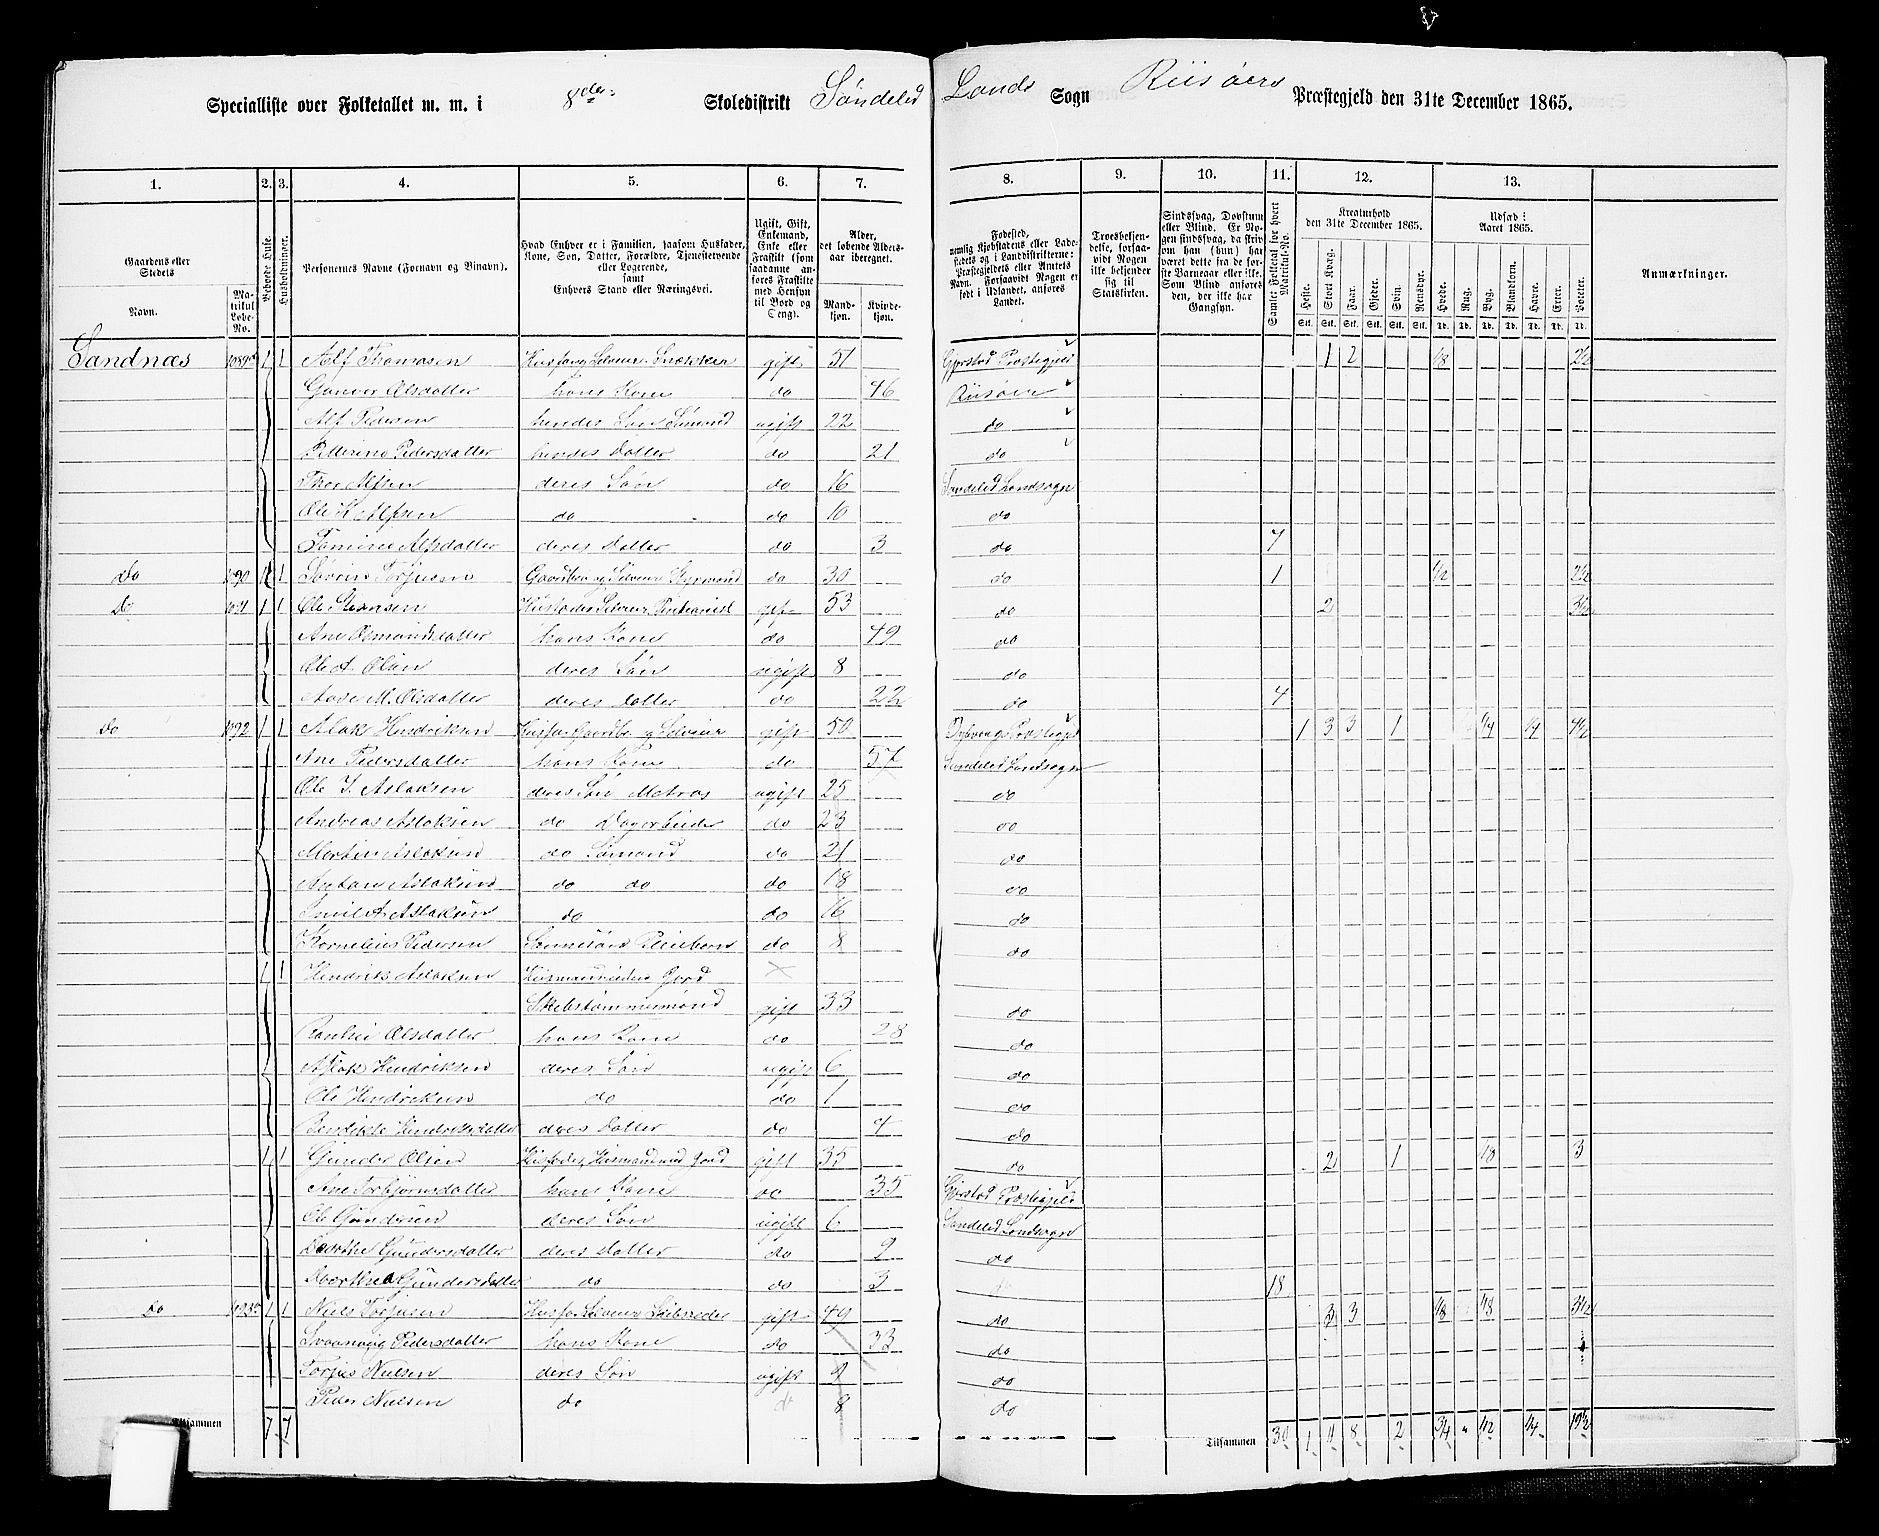 Specialliste over Folketallet m. m. i 8de Skoledistrikt Søndeled Lands Sogn Riisøers Præstegjeld den 31te December 1865.
1. 2. 3. 4. 5. 6. 7. 8. 9. 10. 11. 12. 13.
Gaardens eller Stedets
Navn.
Matrikul Løbe-No.
Beboede Huse.
Husholdninger.
Personernes Navne (Fornavn og Tilnavn).
Hvad Enhver er i Familien, saasom Husfader, Kone, Søn, Datter, Forældre, Tjenestetyende eller Logerende, samt Enhvers Stand eller Næringsvei.
Ugift, Gift, Enkemand, Enke eller Fraskilt (som saadanne anføres Fraskilte med Hensyn til Bord og Seng).
Alder, det løbende Alders-aar iberegnet.
Mand-kjøn. Kvinde-kjøn.
Fødested, nemlig Kjøbstadens eller Ladestedets og i Landdistrikterne: Præstegjeldets eller Amtets Navn. Forsaavidt Nogen er født i Udlandet, anføres Landet.
Troesbekjendelse, forsaavidt Nogen ikke bekjender sig til Statskirken.
Sindssvag, Døvstum eller Blind. Er Nogen sindssvag, da skriv om han (hun) har været dette fra de første Barneaar eller ikke. Som Blind anføres den, der ikke har Gangsyn.
Samlet Folketal for hvert Matrikul-No.
Kreaturhold den 31te December 1865.
Heste. Stort Kvæg. Faar. Gjeder. Svin. Rensdyr.
Udsæd i Aaret 1865.
Hvede. Rug. Byg. Blandkorn. Havre. Erter. Poteter.
Anmærkninger.
Sandnæs 1089a 1 1 Alf Thomasen Husfa og Selveier Snekker gift 51 Gjerstad Præstegjeld 1 2 1/8 2 1/2
Gunvor Olsdatter hans Kone do 46 Riisøer
Alf Pedersen hendes Søn Sømand ugift 22 do
Petterine Pedersdatter hendes Datter do 21 do
Thor Alfsen deres Søn do 16 Søndeled Landsogn
Ole K Alfsen do do 10 do
Tomine Alfsdatter deres Datter do 3 do 7
do 1090 1 1 Søvrin Torjusen Gaardbr og Selveier Styrmand do 30 do 1 1/2 2 1/2
Do 1091 1 1 Ole Stensen Husfader Selveier gift 53 do 2 3 1/2
Ane Osmundsdatter hans Kone do 49 do
Ole A Olsen deres Søn ugift 8 do
Aase M. Olsdatter deres Datter do 22 do 4
do 1092 1 1 Aslak Hendriksen Husfa Gaardbr og Selveier gift 50 Dybvaags Præstegjel 1 3 3 1 1/4 1/4 4 1/2
Ane Pedersdatter hans Kone do 57 Søndeled Landsogn
Ole J. Aslaksen deres Søn Matros ugift 25 do
Andreas Aslaksen do Dagarbeider do 23 do
Martin Aslaksen do Sømand do 21 do
Anton Aslaksen do do do 18 do
Emil A Aslaksen do do 16 do
Kornelius Pedersen Sønnesøn Pleiebarn do 8 do
1 1 Hendrik Aslaksen Husmand uden Jord
Skibstømmermand gift 33 do
Olsdatter hans Kone do 28 do
Aslak Hendriksen deres Søn ugift 6 do
Ole Hendriksen do do 1 do
Bendikte Hendriksdatter deres Datter do 4 do
1 1 Gunder Olsen Husfader, Husmand med Jord gift 35 do 2 1 1/8 3
Ane Torbjørnsdatter hans Kone do 35 Gjerstad Præstegjeld
Ole Gundersen deres Søn ugift 6 Søndeled Landsogn
Gundersdatter deres Datter do 9 do
Gundersdatter do do 3 do 18
Do 1093a 1 1 Niels Torjusen Husfa Selveier Skibsreder gift 49 do 3 3 1/8 1/8 3 1/2
Svaanaug Pedersdatter hans Kone do 33 do
Torjus Nielsen deres Søn ugift 9 do
Peder Nielsen do do 8 do
Tilsammen 7 7 Tilsammen 30 1 11 8 2 3/4 " 1/2 1/4 19 1/2